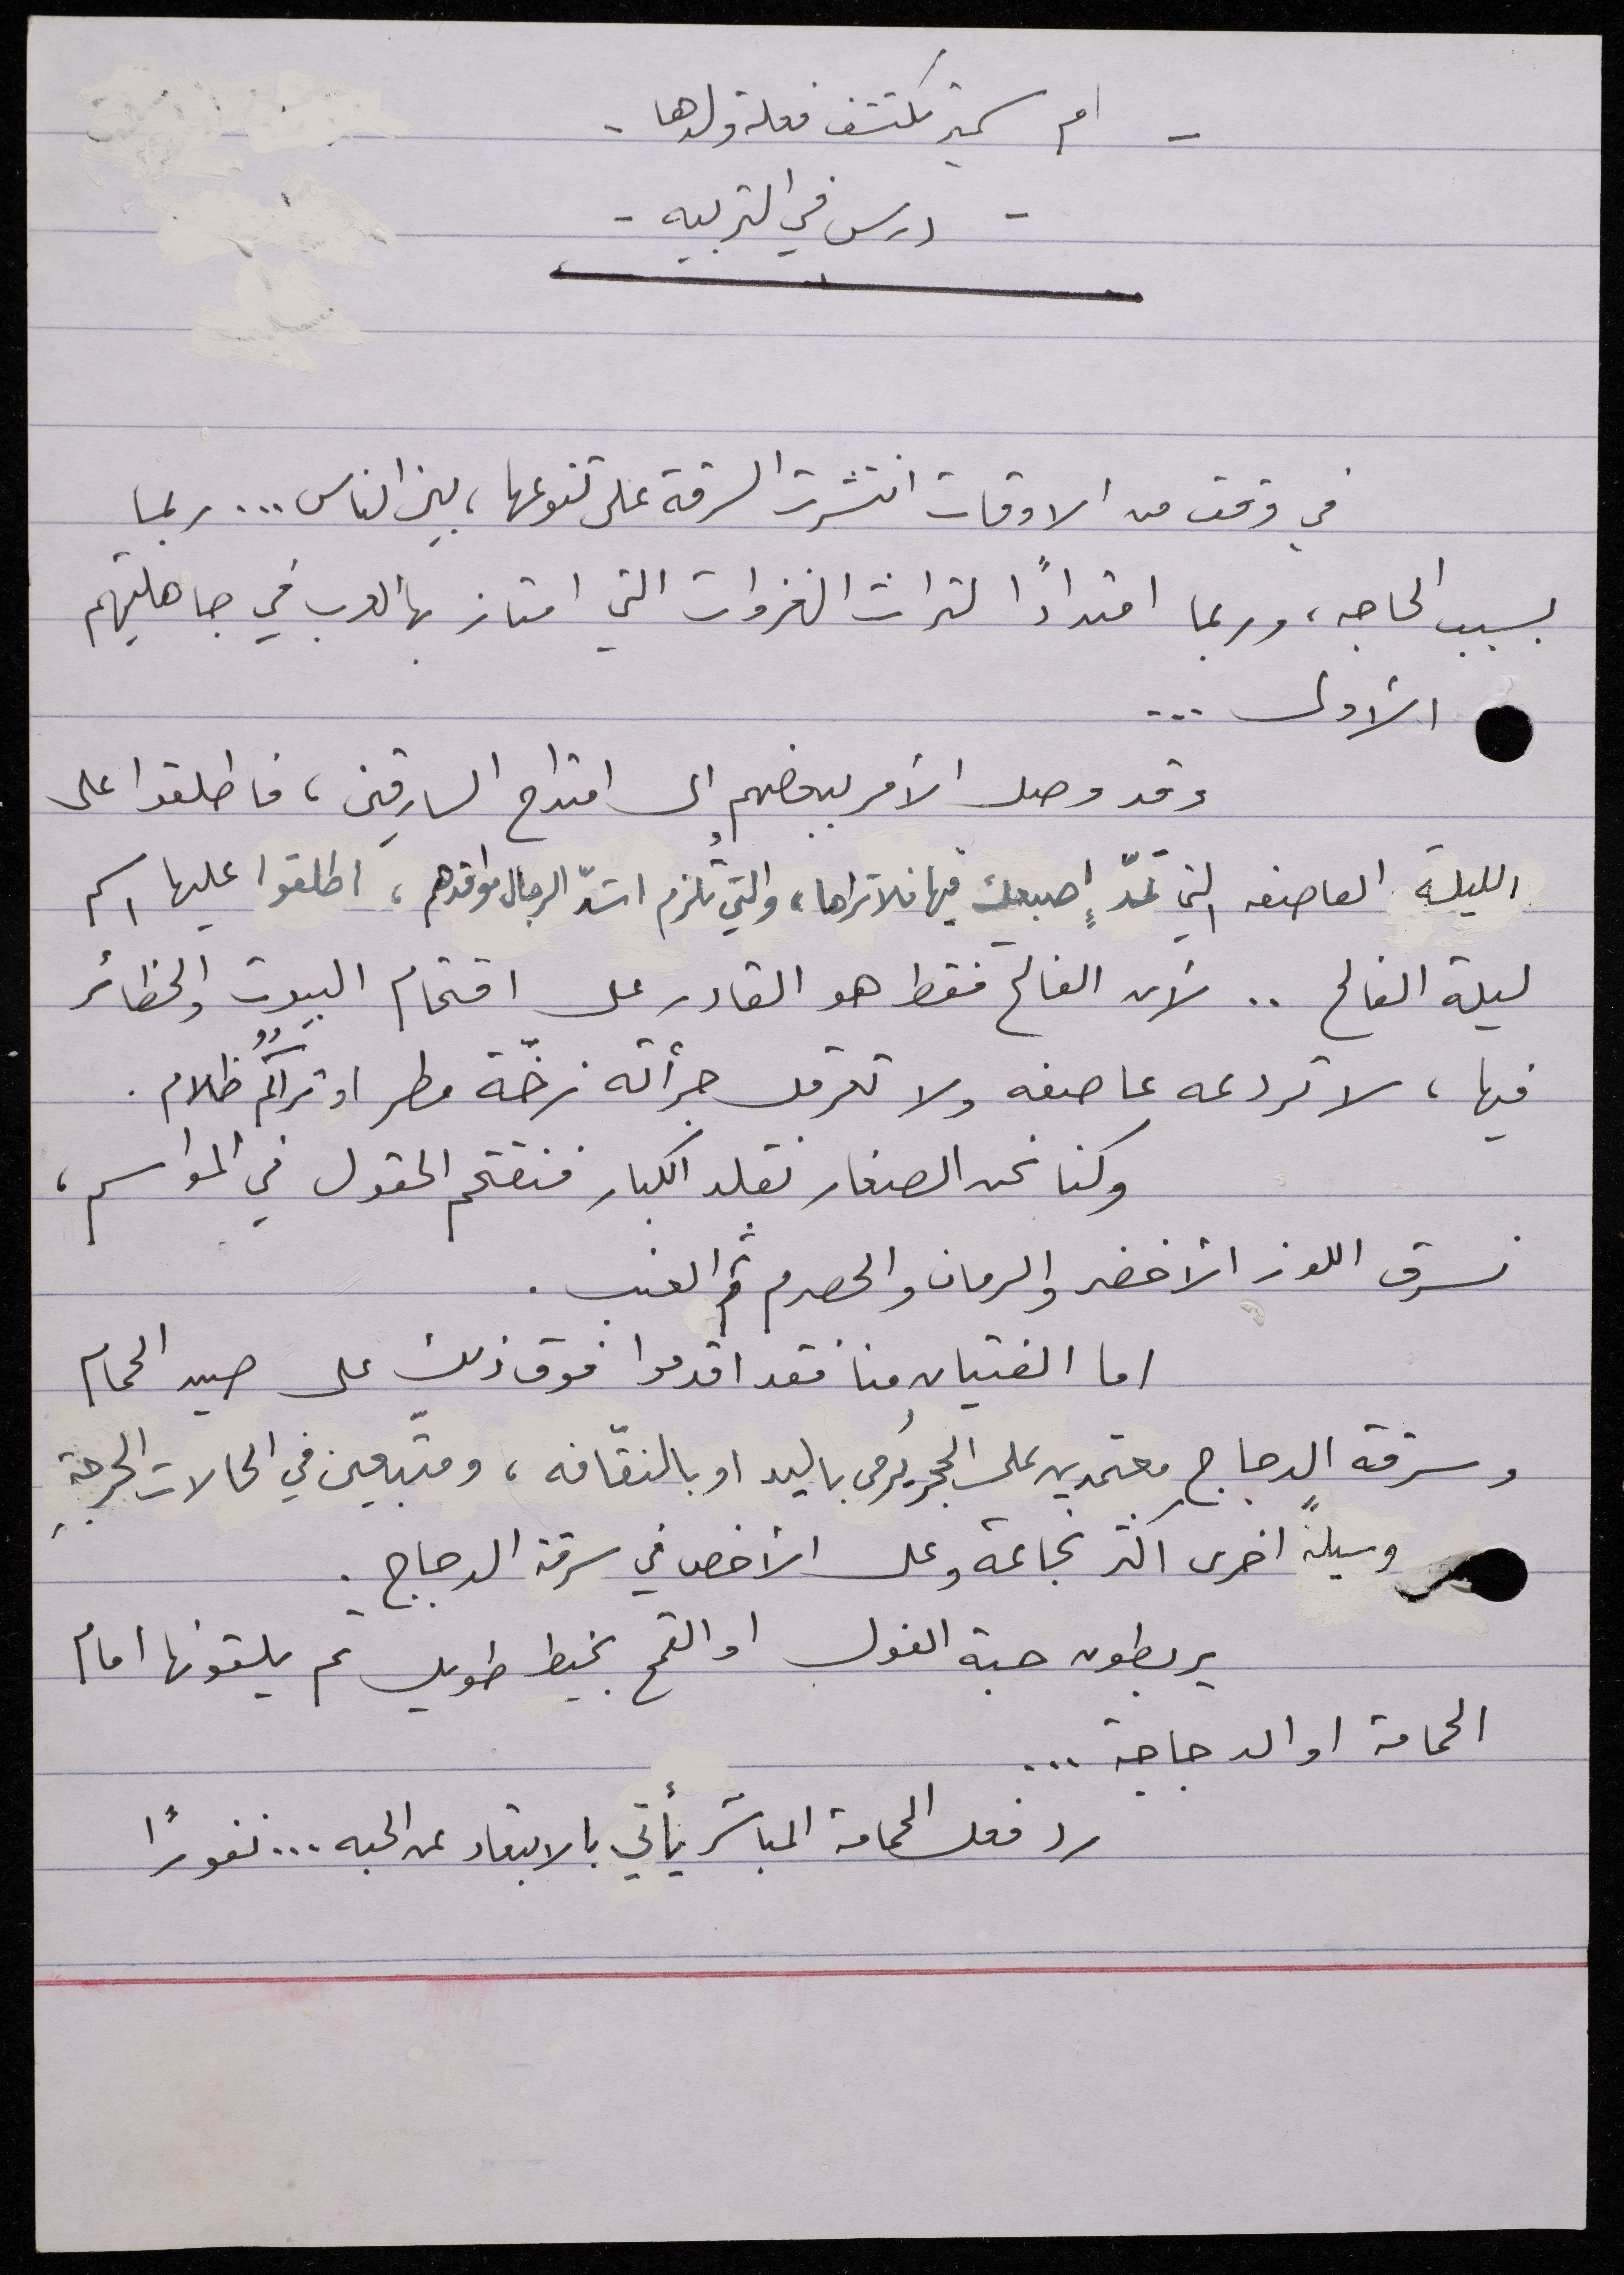 - ام سمير تكتشف فعلة ولدها -
- درس في التربيه -
في وقت من الاوقات انتشرت السرقة على تنوعها، بين الناس... ربما
بسبب الحاجه، وربما امتدادًا لتراث الغزوات التي امتاز بها العرب في جاهليتهم
الأولى ...
وقد وصل الأمر ببعضهم الى امتداح السارقين، فاطلقوا على
الليلة العاصفه التي تمدّ إصبعك فيها فلا تراها، والتي تُلزم اشدّ الرجال مواقدهم، اطلقوا عليها اسم
ليلة الفالح .. لأن الفالح فقط هو القادر على اقتحام البيوت والحظائر
فيها، لا تردعه عاصفه ولا تعرقل جرأته زخّة مطر او تراكُم ظلام.
وكنا نحن الصغار نقلد الكبار فنقتحم الحقول في المواسم،
نسرق اللوز الأخضر والرمان والحصرم ثم العنب.
اما الفتيان منا فقد اقدموا فوق ذلك على صيد الحمام
وسرقة الدجاج معتمدين على الحجر يُرمى باليد او بالنقّافه، ومتّبعين في الحالات الحرجةِ
وسيلةً اخرى اكثر نجاعة وعلى الأخص في سرقة الدجاج.
يربطون حبة الفول او القمح بخيط طويل ثم يلقونها امام
الحمامة او الدجاجة ...
رد فعل الحمامة المباشر يأتي بالابتعاد عن الحبه... نفورًا